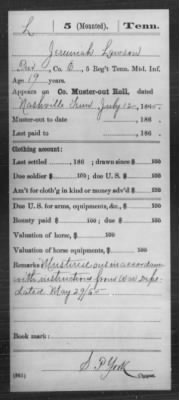 L | 5 (Mounted). | Tenn.
Jeremiah Lawson
Pvt, Co. B, 5 Reg't Tenn. Mtd. Inf.
Age 19 years.
Appears on Co. Muster-out Roll, dated
Nashville Tenn July 12, 1865.
Muster-out to date , 186 .
Last paid to , 186 .
Clothing account:
Last settled , 186 ; drawn since $ 100
Due soldier $ 100; due U. S. $ 100
Am't for cloth'g in kind or money adv'd $ 100
Due U. S. for arms, equipments, &c., $ 100
Bounty paid $ 100; due $ 100
Valuation of horse, $ 100
Valuation of horse equipments, $ 100
Remarks: Mustered out in accordance
with instructions from War Dept
dated May 29/65
Book mark:
S. P. York
(861) Copyist.